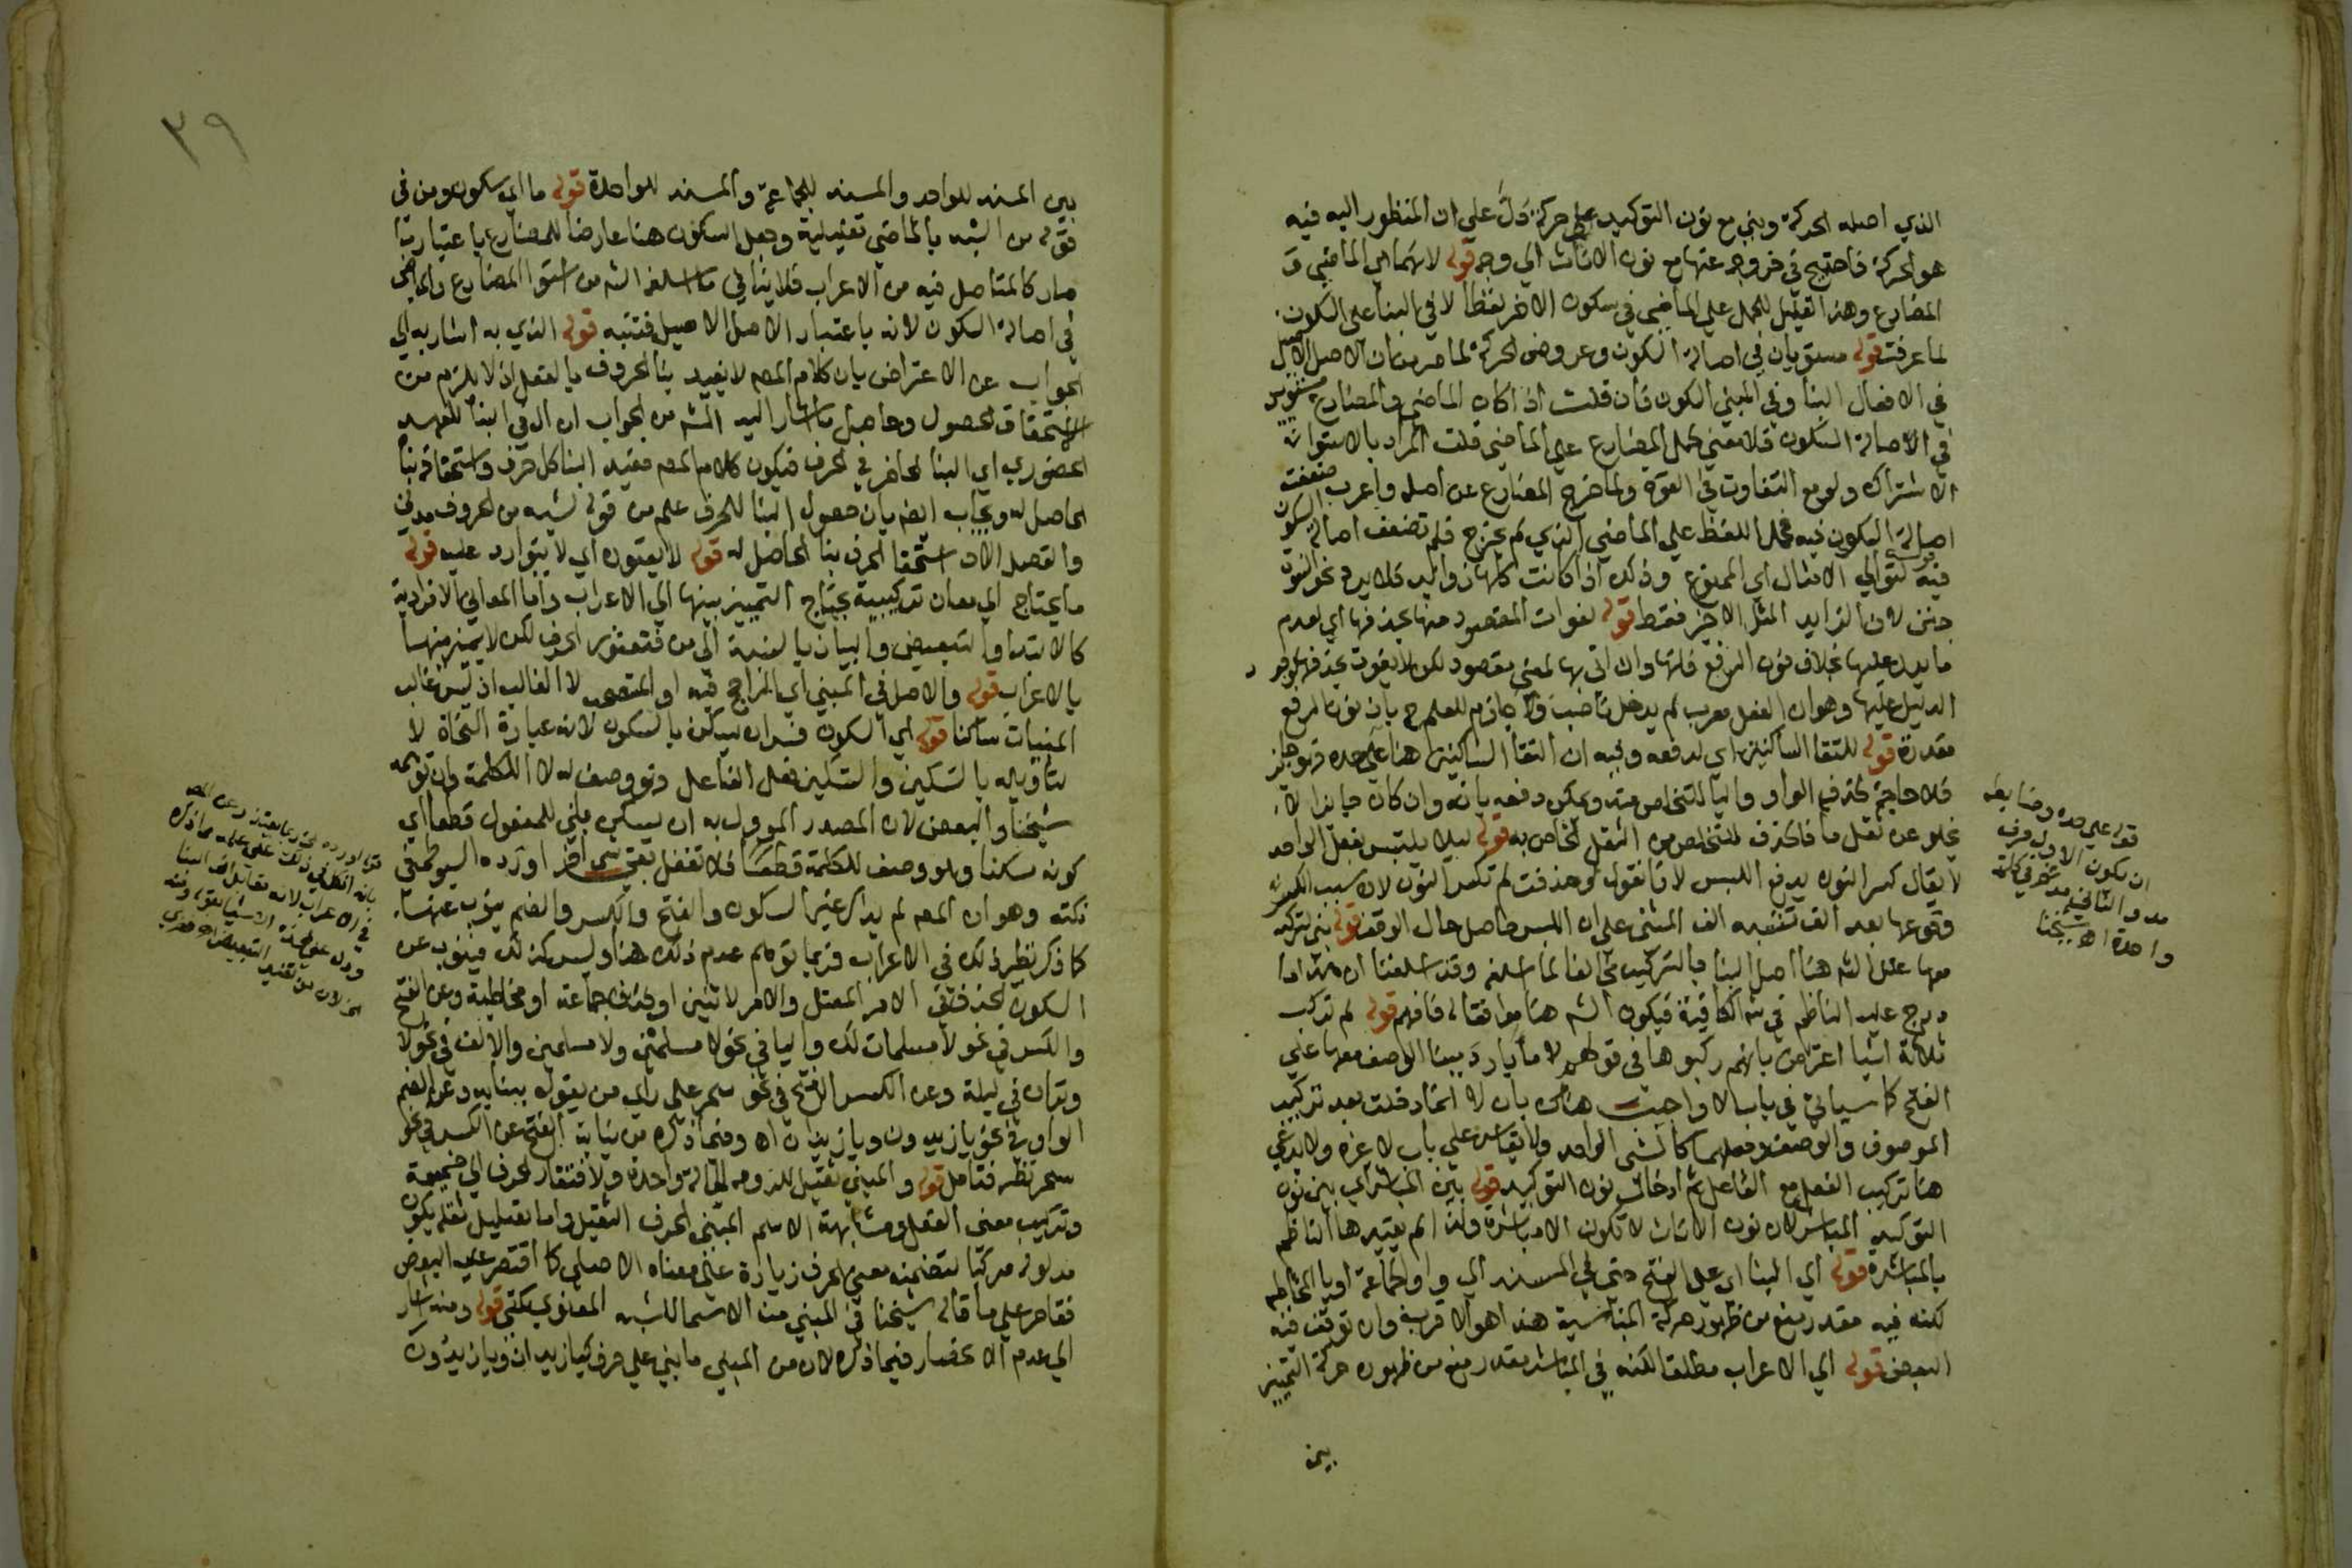 الذي اصله الحركة وبني مع نون التوكيد على حركة دل على ان المنظور اليه فيه
هو الحركة فاحتيج في خروجه عنها مع نون الاناث الي وجه قوله لانهما اي الماضي و
المضارع وهذا التعليل للحمل علي الماضي في سكون الاخر لفظا لا في البنا على السكون
لما عرفت قوله مستويان في اصالة السكون وعروض الحركة لما مر من ان الاصل الاصيل
في الافعال البنا وفي المبني السكون فان قلت اذا كان الماضي والمضارع مستويين
في الاصالة السكون فلا معني لحمل المضارع علي الماضي قلت المراد بالاستواء
الاشتراك ولو مع التفاوت في القوة ولما خرج المضارع عن اصله واعرب ضعفت
اصالة السكون فيه فحمل اللفظ علي الماضي الذي لم يخرج فلم تضعف اصالة السكون
فيه قوله لتوالي الامثال اي الممنوع وذلك اذا كانت كلها زوايد فلا يرد نحو النسوة
جنن لان الزايد المثل الاخير فقط قوله لفوات المقصود منها بحذفها اي لعدم
ما يدل عليها بخلاف نون الرفع فانها وان اتي بها لمعني مقصود لكن لا يفوت بحذفها لوجود
الدليل عليها وهو ان الفعل معرب لم يدخل ناصب ولا جازم للعلم ح بان نون الرفع
مقدرة قوله لالتقا الساكنين اي لدفعه وفيه ان التقا الساكنين هنا علي حده فهو جايز
فلا حاجة لحذف الواو واليا للتخلص منه ويمكن دفعه بانه وان كان جايزا لا
يخلو عن ثقل ما فالحذف للتخلص من الثقل الخاص به قوله ليلا يلتبس بفعل الواحد
لا يقال كسر النون يدفع اللبس لانا نقول لو حذفت لم تكسر النون لان سبب الكسر
وقوعها بعد الف تشبه الف المثنى على ان اللبس حاصل حال الوقف قوله بني لتركبه
معها علل الش هنا اصل البنا بالتركيب مخالفا لما اسلفه وقد اسلفنا ان هذا ما
درج عليه الناظم في ش الكافية فيكون الش هنا موافقا له فافهم قوله لم تركب
ثلاثة اشيا اعترض بانهم ركبوها في قولهم لا ماء بارد ببنا الوصف معها علي
الفتح كما سياتي في باب لا واجيب هناك بان لا انما دخلت بعد تركيب
الموصوف والوصف وجعلهما كالشي الواحد ولا يقاس علي باب لا غيره ولا يدعي
هنا تركيب الفعل مع الفاعل ثم ادخال نون التوكيد قوله بين المباشر اي بين نون
التوكيد المباشر لان نون الاناث لا تكون الا مباشرة ولذا لم يقيدها الناظم
بالمباشرة قوله اي البنا اي علي الفتح حتى في المسند الي واو الجماعة او يا المخاطبة
لكنه فيه مقدر منع من ظهوره حركة المناسبة هذا هو الاقرب وان توقف فيه
البعض قوله الي الاعراب مطلقا لكنه في المباشر مقدر منع من ظهوره حركة التمييز
بين
قوله علي حده وضابطه
ان يكون الاول حرف
مد والثاني مدغم في كلمة
واحدة اه شيخنا
٣٩
بين المسند للواحد والمسند للجماعة والمسند للواحدة قوله ما اي سكون ومن في
قوله من الشبه بالماضي تعليلية وجعل السكون هنا عارضا للمضارع باعتبار ما
صار كالمتاصل فيه من الاعراب فلا ينافي ما اسلفه الش من استوا المضارع والماضي
في اصالة السكون لانه باعتبار الاصل الاصيل فتنبه قوله الذي به اشار به الي
الجواب عن الاعتراض بان كلام المص لا يفيد بنا الحروف بالفعل اذ لا يلزم من
الاستحقاق الحصول وحاصل ما اشار اليه الش من الجواب ان ال في البنا للعهد
الحضوري اي البنا الحاضر في الحرف فيكون كلام المص مفيد البنا كل حرف واستحقاقه بنا
الحاصل له ويجاب ايضا بان حصول البنا للحرف علم من قوله لشبه من الحروف مدني
والقصد الان استحقا الحرف بنا الحاصل له قوله لا يعتوره اي لا يتوارد عليه قوله
ما يحتاج الي معان تركيبية يحتاج التمييز بينها الي الاعراب واما المعاني الافرادية
كالابتدا والتبعيض والبيان بالنسبة الي من فتعتور الحرف لكن لا يميز بينها
بالاعراب قوله والاصل في المبني اي الراجح فيه او المستصحب لا الغالب اذ ليس غالب
المبنيات ساكنا قوله اي السكون فسر ان يسكن بالسكون لانه عبارة النحاة لا
بتاويله بالتسكين والتسكين فعل الفاعل وهو وصف له لا للكلمة وان توهمه
شيخنا والبعض لان المصدر الموول به ان يسكن مبني للمفعول قطعا اي
كونه مسكنا وهو وصف للكلمة قطعا فلا تغفل بقي شي اخر اورده السيوطي في
نكته وهو ان المص لم يذكر غير السكون والفتح والكسر والضم ينوب عنها
كما ذكر نظير ذلك في الاعراب فربما توهم عدم ذلك هنا وليس كذلك فينوب عن
السكون الحذف في الامر المعتل والامر لاثنين او جماعة او مخاطبة وعن الفتح
والكسر في نحو لا مسلمات لك واليا في نحو لا مسلمين ولا مسلمين والالف في نحو لا
وتران في ليلة وعن الكسر الفتح في نحو سحر علي راي من يقول ببنايه وعن الضم
الواو في نحو يا زيدون ويا زيدان اه وفيما ذكره من نيابة الفتح عن الكسر في نحو
سحر نظر فتامل قوله والمبني ثقيل للزومه لحالة واحدة ولافتقار الحرف الي ضميمة
وتركيب معنى الفعل ومشابهة الاسم المبني الحرف الثقيل واما تعليل ثقله بكون
مدلوله مركبا لتضمنه معني الحرف زيادة علي معناه الاصلي كما اقتصر عليه البعض
فقاصر علي ما قاله شيخنا في المبني من الاسما للشبه المعنوي نكتي قوله ومنه اشار
الي عدم الانحصار فيما ذكره لان من المبني ما بني علي حرف كيا زيدان ويا زيدون